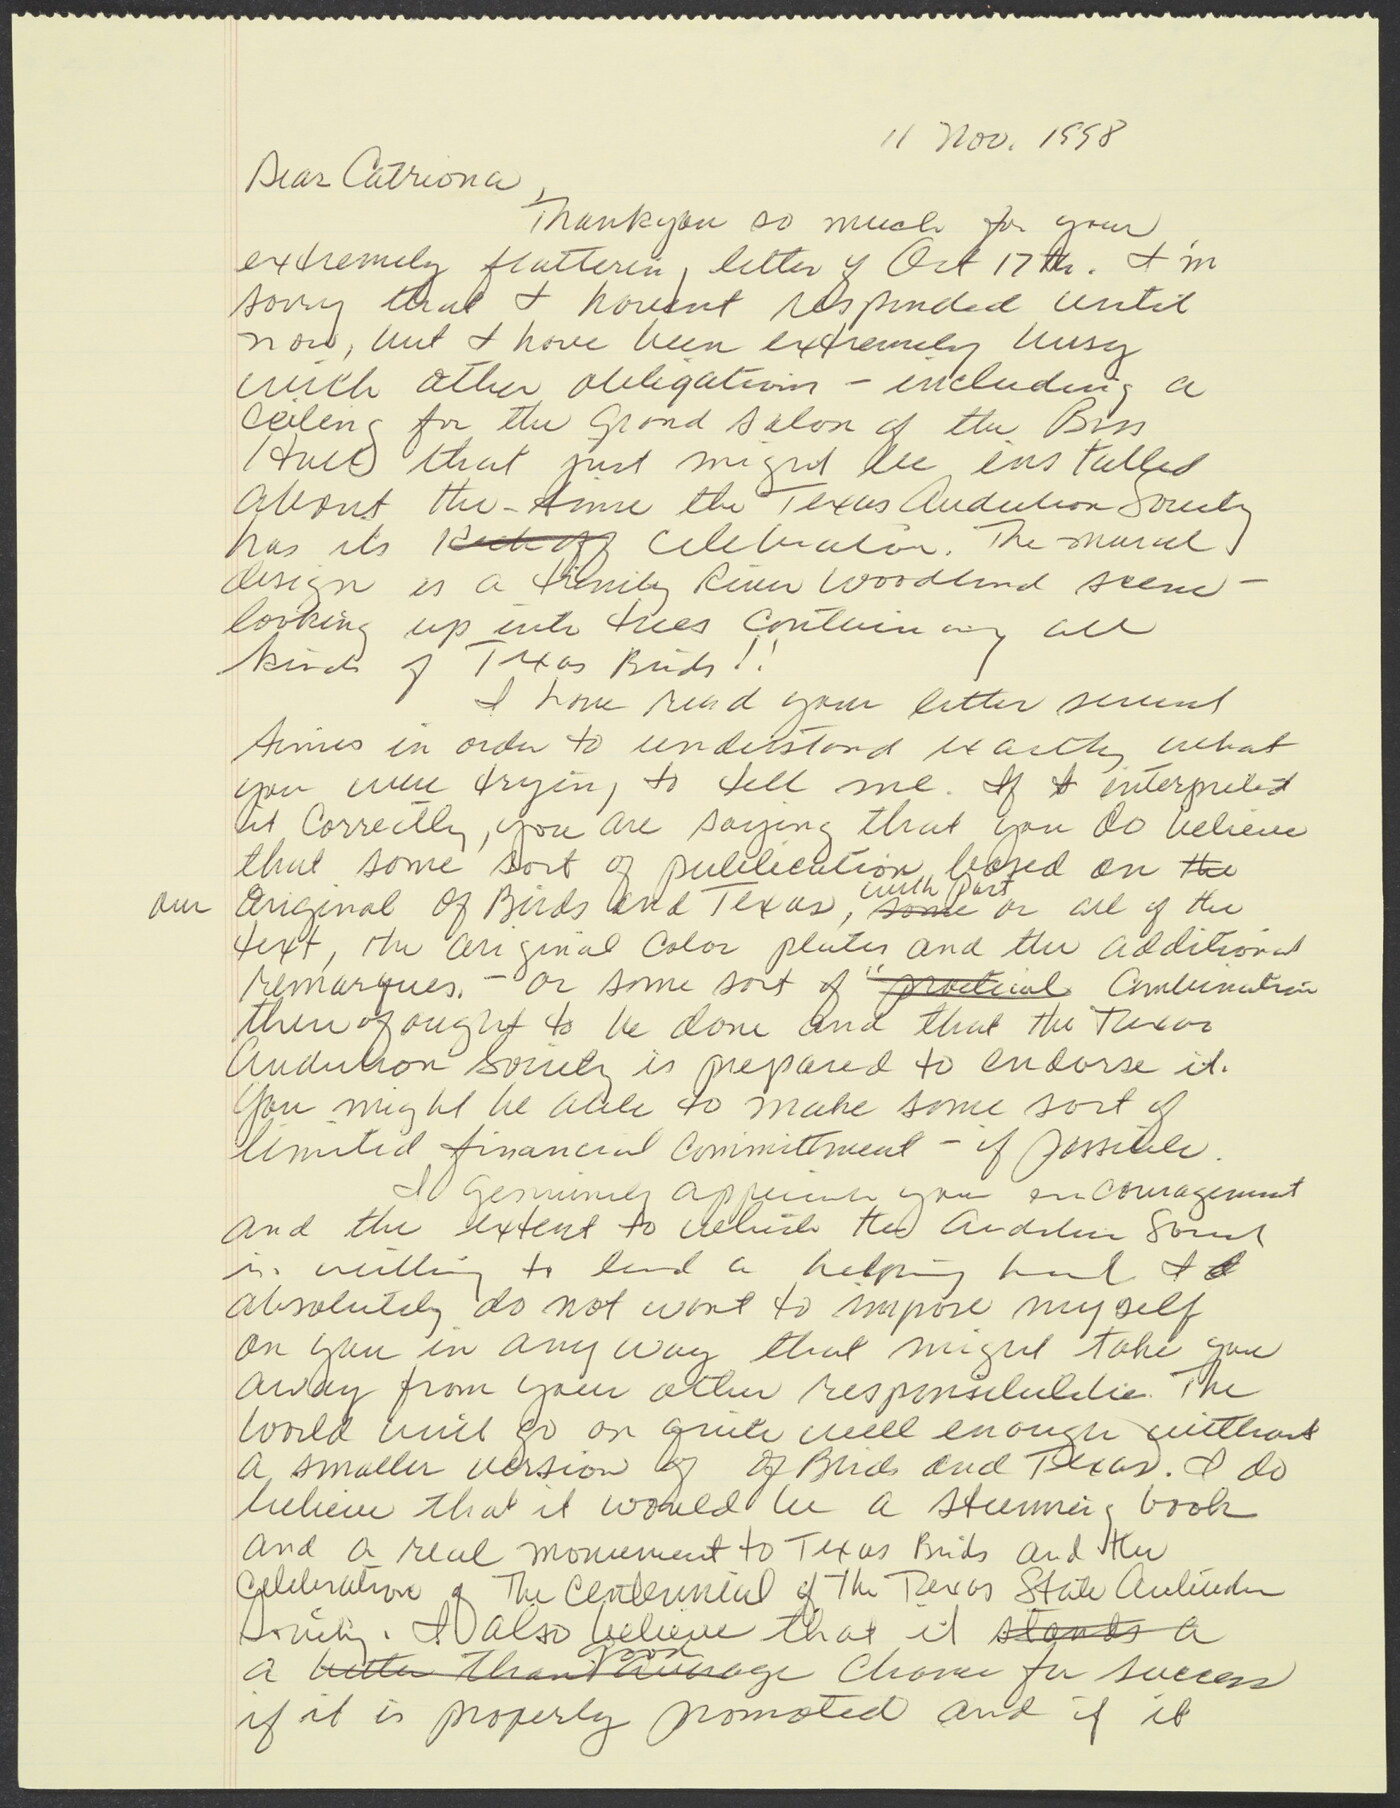 11 Nov. 1998
Dear Catriona,
Thankyou so much for your
extremely flattering letter of Oct 17th. I'm
sorry that I havent responded until
now, but I have been extremely busy
with other obligations - including a
ceiling for the Grand Salon of the Bass
Hall that just might be installed
about the time the Texas Audubon Society
has its Kick off celebration. The mural
design is a Trinity River woodland scene -
looking up into trees containing all
kinds of Texas Birds!!
I have read your letter several
times in order to understand exactly what
you were trying to tell me. If I interpreted
it correctly, you are saying that you do believe
that some sort of publication based on the
our original Of Birds and Texas, some with part or all of the
text, the original color plates and the additional
remarques. - or some sort of "practical combination
thereof ought to be done and that the Texas
Audubon Society is prepared to endorse it.
You might be able to make some sort of
limited financial committment - if possible.
I genuinely appreciate your encouragement
and the extent to which the Audubon Society
is willing to lend a helping hand. I
absolutely do not want to impose myself
on you in any way that might take you
away from your other responsibilities. The
world will go on quite well enough without
a smaller version of Of Birds and Texas. I do
believe that it would be a stunning book
and a real monument to Texas Birds and the
celebration of The Centennial of The Texas State Audubon
Society. I also believe that it stands a
a better than average good chance for success
if it is properly promoted and if it